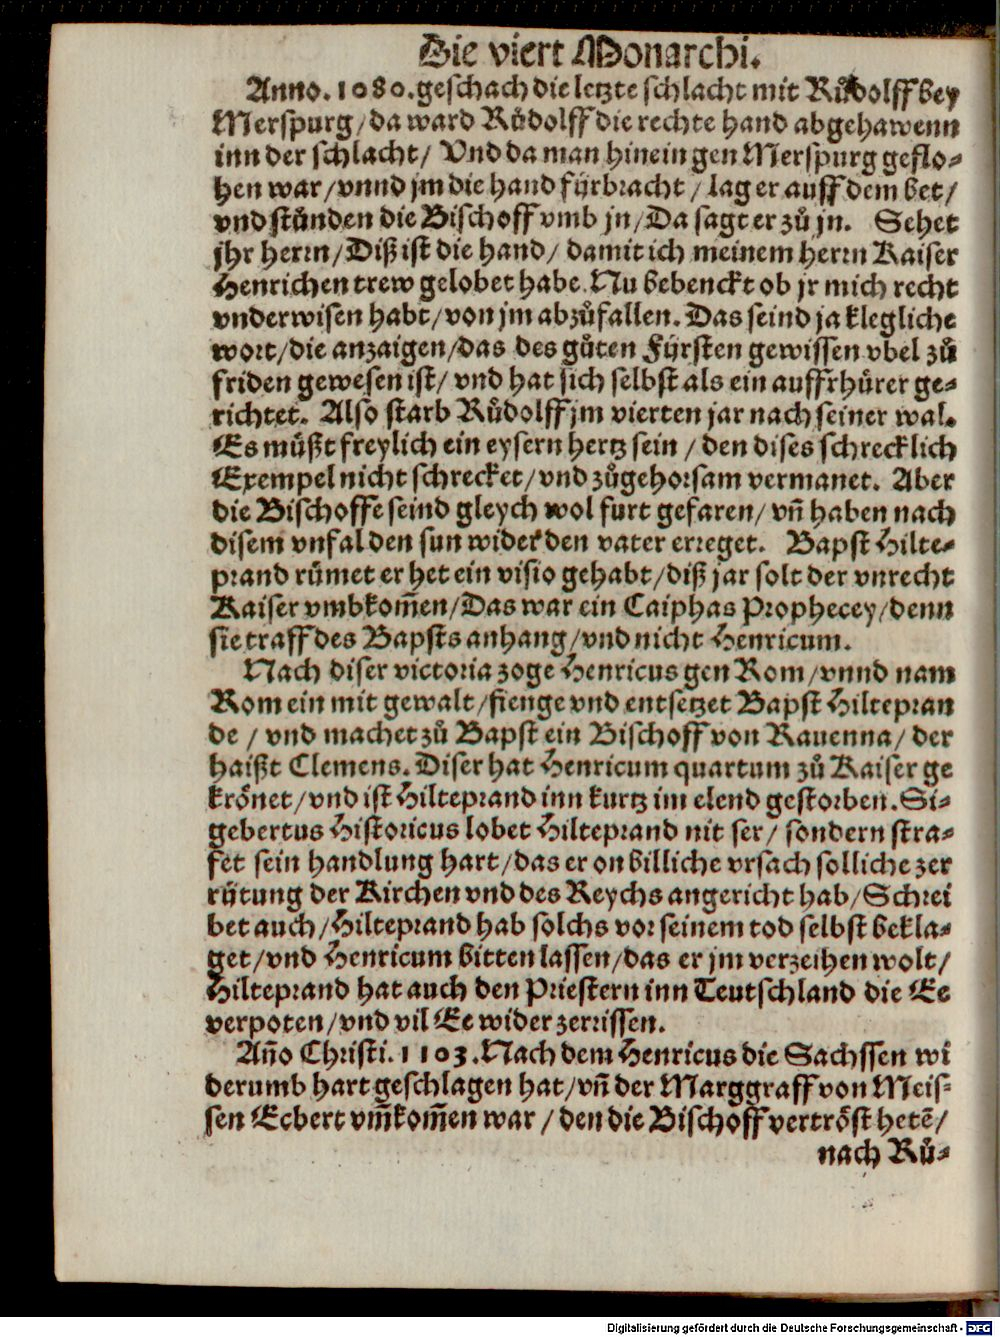 Die viert Monarchi.
Anno. 1080. geschach die letzte schlacht mit Růdolff bey
Merspurg/ da ward Růdolff die rechte hand abgehawenn
inn der schlacht/ Vnd da man hinein gen Merspurg geflo-
hen war/ vnnd jm die hand fürbracht/ lag er auff dem bet/
vnd stůnden die Bischoff vmb jn/ Da sagt er zů jn. Sehet
jhr herrn/ Diß ist die hand/ damit ich meinem herrn Kaiser
Henrichen trew gelobet habe. Nu bebenckt ob jr mich recht
vnderwisen habt/ von jm abzůfallen. Das seind ja klegliche
wort/ die anzaigen/ das des gůten Fürsten gewissen vbel zů
friden gewesen ist/ vnd hat sich selbst als ein auffrhůrer ge-
richtet. Also starb Růdolff jm vierten jar nach seiner wal.
Es můßt freylich ein eysern hertz sein/ den dises schrecklich
Exempel nicht schrecket/ vnd zůgehorsam vermanet. Aber
die Bischoffe seind gleych wol furt gefaren/ vñ haben nach
disem vnfal den sun wider den vater erreget. Bapst Hilte-
prand růmet er het ein visio gehabt/ diß jar solt der vnrecht
Kaiser vmbkom̃en/ Das war ein Caiphas Prophecey/ denn
sie traff des Bapsts anhang/ vnd nicht Henricum.
Nach diser victoria zoge Henricus gen Rom/ vnnd nam
Rom ein mit gewalt/ fienge vnd entsetzet Bapst Hiltepran
de/ vnd machet zů Bapst ein Bischoff von Rauenna/ der
haißt Clemens. Diser hat Henricum quartum zů Kaiser ge
krönet/ vnd ist Hilteprand inn kurtz im elend gestorben. Si-
gebertus Historicus lobet Hilteprand nit ser/ sondern stra-
fet sein handlung hart/ das er on billiche vrsach solliche zer
rütung der Kirchen vnd des Reychs angericht hab/ Schrei
bet auch/ Hilteprand hab solchs vor seinem tod selbst bekla-
get/ vnd Henricum bitten lassen/ das er jm verzeihen wolt/
Hilteprand hat auch den Priestern inn Teutschland die Ee
verpoten/ vnd vil Ee wider zerrissen.
Añο Christi. 1103. Nach dem Henricus die Sachssen wi
derumb hart geschlagen hat/ vñ der Marggraff von Meis-
sen Ecbert vm̃kom̃en war/ den die Bischoff vertröst hetẽ/
nach Rů-
Digitalisierung gefördert durch die Deutsche Forschungsgemeinschaft - DFG